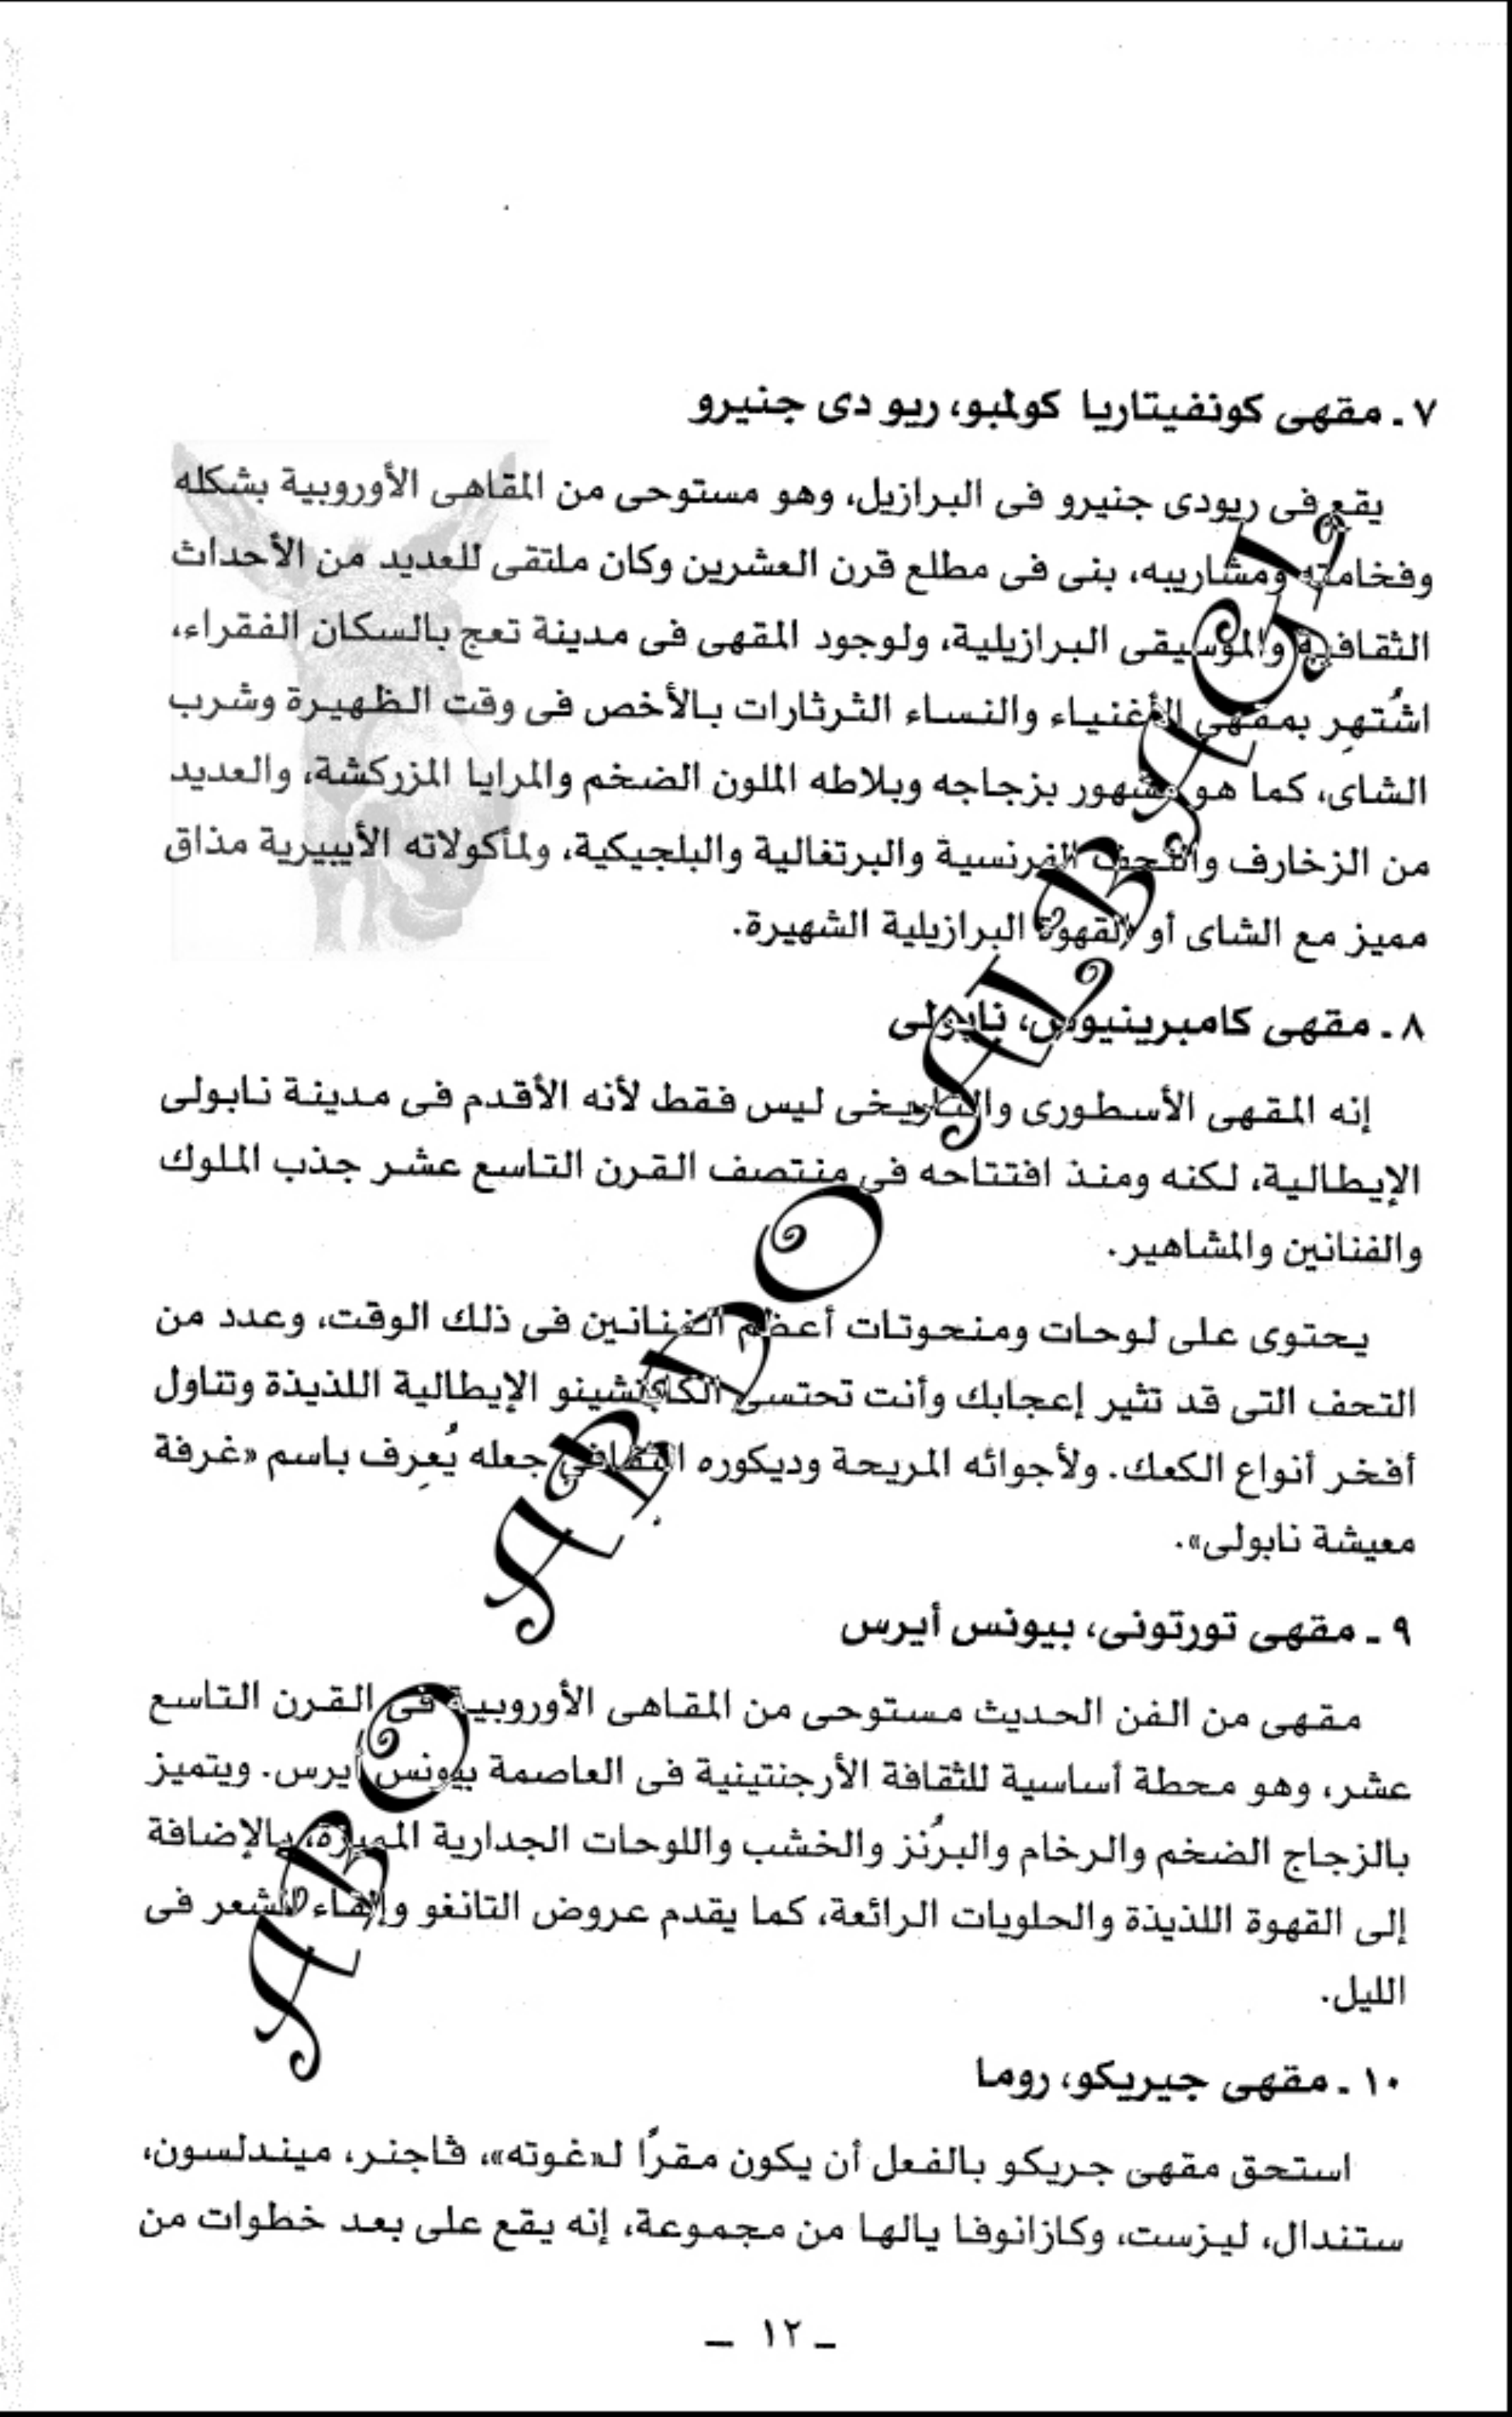 ٧ ـ مقهى كونفيتاريا كولمبو، ريو دى جنيرو
يقع فى ريودى جنيرو فى البرازيل، وهو مستوحى من المقاهى الأوروبية بشكله
وفخامته ومشاريبه، بنى فى مطلع قرن العشرين وكان ملتقى للعديد من الأحداث
الثقافية والموسيقى البرازيلية، ولوجود المقهى فى مدينة تعج بالسكان الفقراء،
اشُتهِر بمقهى الأغنياء والنساء الثرثارات بالأخص فى وقت الظهيرة وشرب
الشاى، كما هو مشهور بزجاجه وبلاطه الملون الضخم والمرايا المزركشة، والعديد
من الزخارف والتحف الفرنسية والبرتغالية والبلجيكية، ولمأكولاته الأيبيرية مذاق
مميز مع الشاى أو القهوة البرازيلية الشهيرة.
٨ ـ مقهى كامبرينيوس، نابولى
إنه المقهى الأسطورى والتاريخى ليس فقط لأنه الأقدم فى مدينة نابولى
الإيطالية، لكنه ومنذ افتتاحه فى منتصف القرن التاسع عشر جذب الملوك
والفنانين والمشاهير.
يحتوى على لوحات ومنحوتات أعظم الفنانين فى ذلك الوقت، وعدد من
التحف التى قد تثير إعجابك وأنت تحتسى الكابتشينو الإيطالية اللذيذة وتناول
أفخر أنواع الكعك. ولأجوائه المريحة وديكوره الثقافى جعله يُعرِف باسم «غرفة
معيشة نابولى».
٩ ـ مقهى تورتونى، بيونس أيرس
مقهى من الفن الحديث مستوحى من المقاهى الأوروبية فى القرن التاسع
عشر، وهو محطة أساسية للثقافة الأرجنتينية فى العاصمة بيونس أيرس. ويتميز
بالزجاج الضخم والرخام والبرُنز والخشب واللوحات الجدارية المميزة، بالإضافة
إلى القهوة اللذيذة والحلويات الرائعة، كما يقدم عروض التانغو وإلقاء الشعر فى
الليل.
١٠ ـ مقهى جيريكو، روما
استحق مقهى جريكو بالفعل أن يكون مقرًا لـ«غوته»، ڤاجنر، ميندلسون،
ستندال، ليزست، وكازانوفا يالها من مجموعة، إنه يقع على بعد خطوات من
ـ ١٢ ـ
ABO ABDO ALBAGL